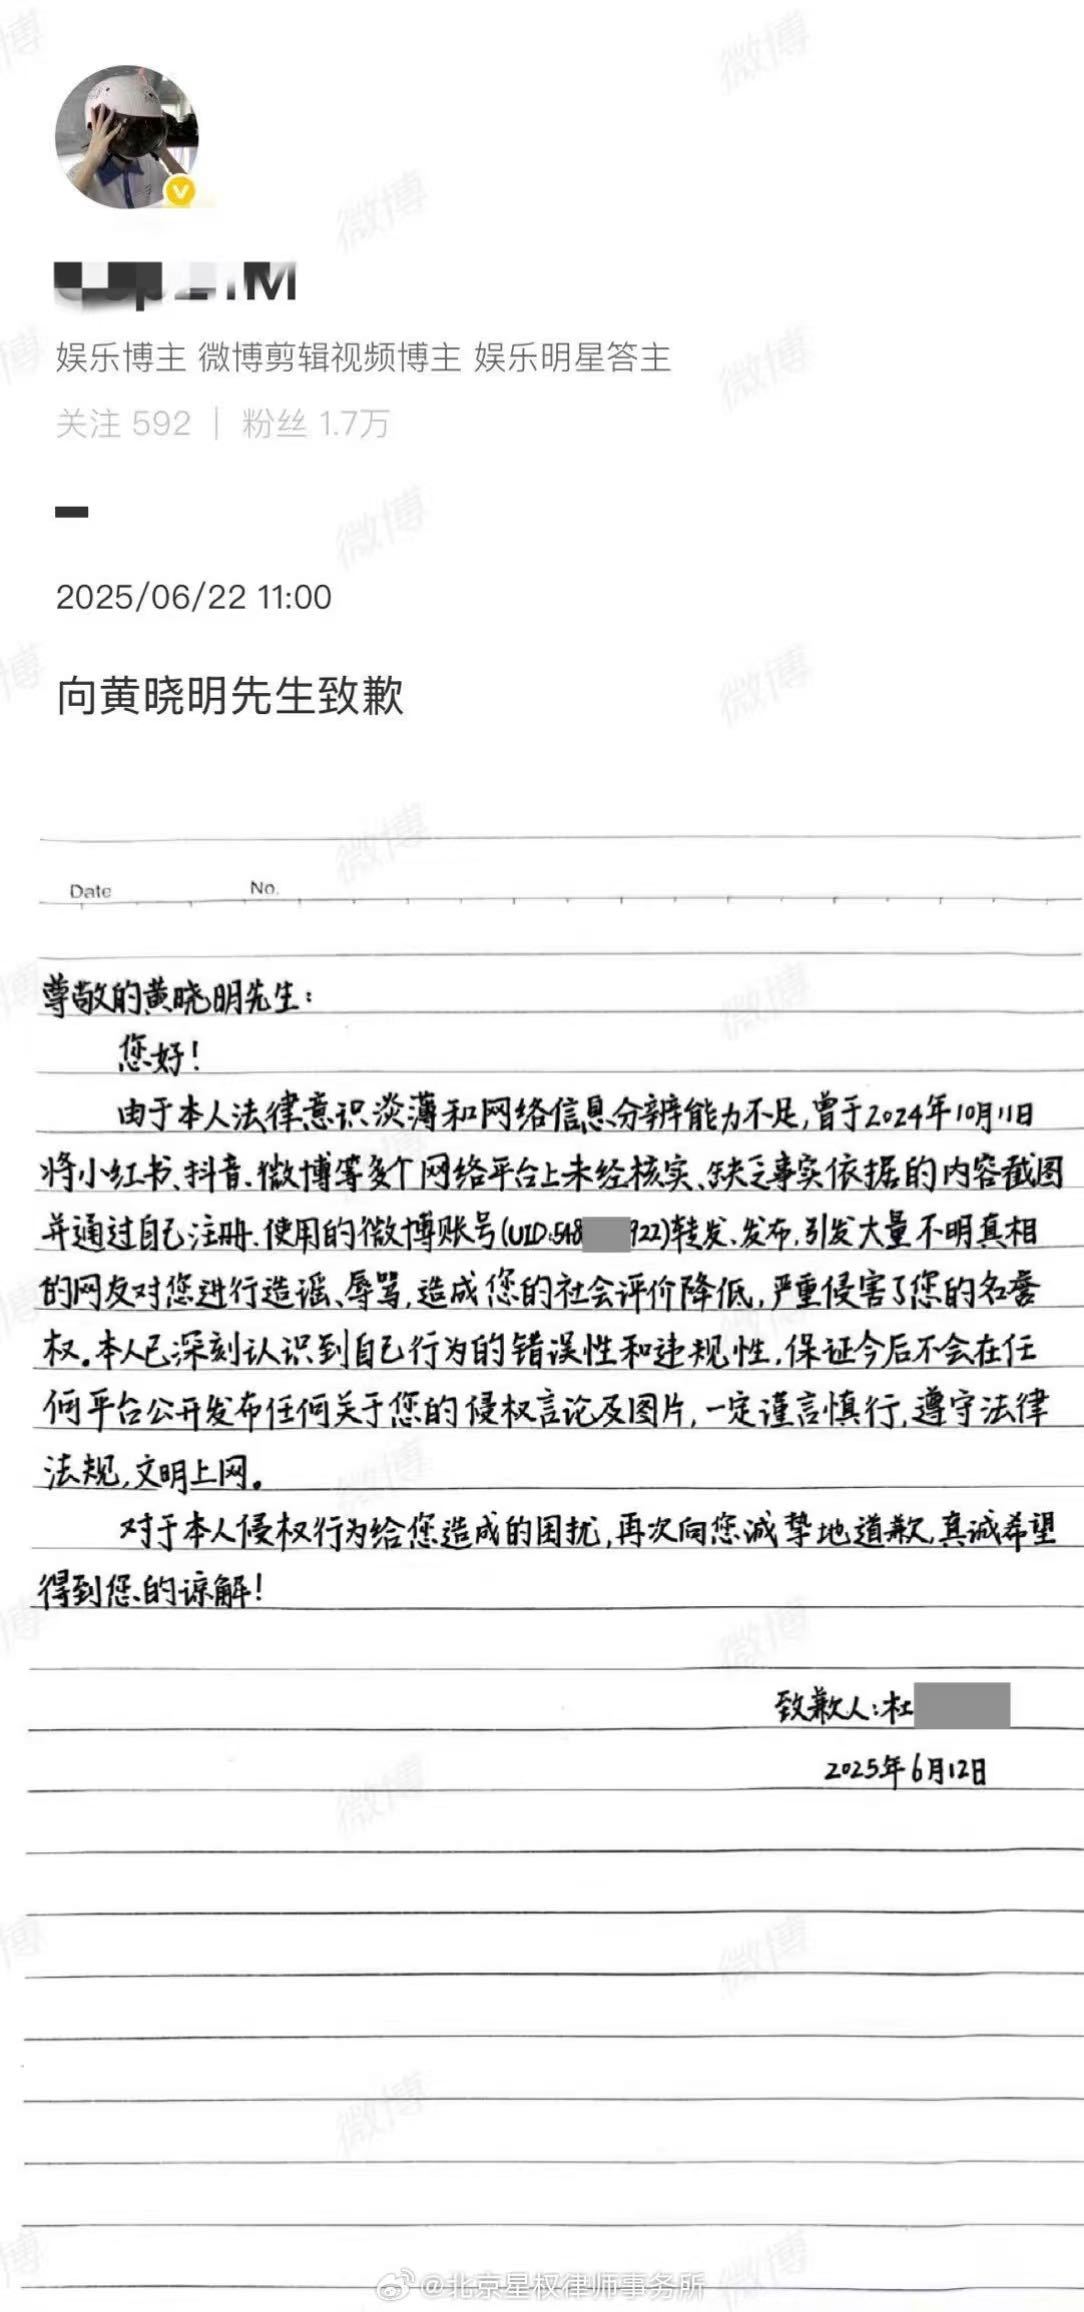 娱乐博主 微博剪辑视频博主 娱乐明星答主
关注 592 | 粉丝 1.7万
2025/06/22 11:00
向黄晓明先生致歉
Date No.
尊敬的黄晓明先生：
您好！
由于本人法律意识淡薄和网络信息分辨能力不足，曾于2024年10月11日
将小红书、抖音、微博等多个网络平台上未经核实、缺乏事实依据的内容截图
并通过自己注册、使用的微博账号(UID:548 922)转发、发布，引发大量不明真相
的网友对您进行造谣、辱骂，造成您的社会评价降低，严重侵害了您的名誉
权。本人已深刻认识到自己行为的错误性和违规性，保证今后不会在任
何平台公开发布任何关于您的侵权言论及图片，一定谨言慎行，遵守法律
法规，文明上网。
对于本人侵权行为给您造成的困扰，再次向您诚挚地道歉，真诚希望
得到您的谅解！
致歉人：杜
2025年6月12日
@北京星权律师事务所
微博